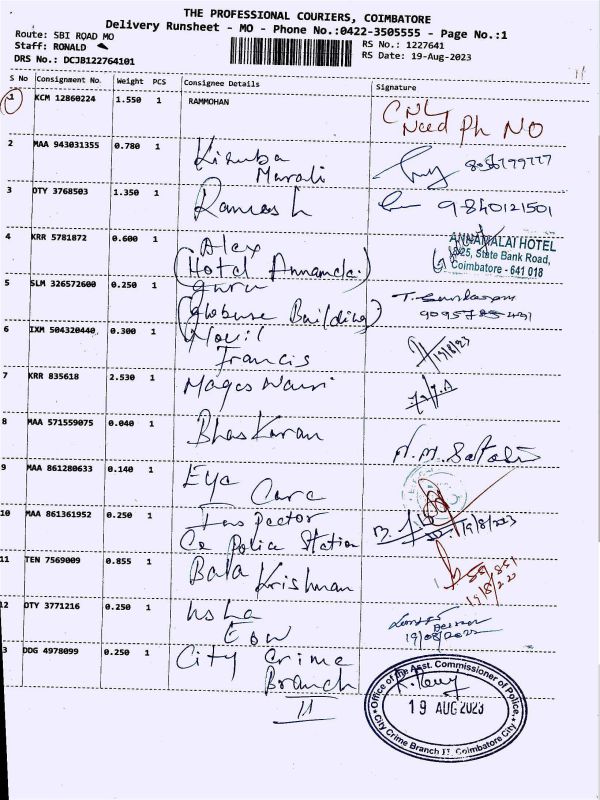 THE PROFESSIONAL COURIERS, COIMBATORE
Delivery Runsheet - MO - Phone No.:0422-3505555 - Page No.:1
Route: SBI ROAD MO
Staff: RONALD
DRS No.: DCJB122764101
RS No.: 1227641
RS Date: 19-Aug-2023
S No Consignment No. Weight PCS Consignee Details Signature
1 KCM 12860224 1.550 1 RAMMOHAN CNL
Need Ph NO
2 MAA 943031355 0.780 1 Kiruba
Murali
3 OTY 3768503 1.350 1 Ramesh 9840121501
4 KRR 5781872 0.600 1 Alex
(Hotel Annamalai)
ANNAMALAI HOTEL
8/25, State Bank Road,
Coimbatore - 641 018
5 SLM 326572600 0.250 1 Guru
Building)
6 IXM 504320440, 0.300 1
Francis 19/8/23
7 KRR 835618 2.530 1
8 MAA 571559075 0.040 1 Bhaskaran
9 MAA 861280633 0.140 1 Eye
Care
10 MAA 861361952 0.250 1 Inspector
Ce Police Station 19/8/2023
11 TEN 7569009 0.855 1 Bala
Krishnan
12 OTY 3771216 0.250 1 Usha
EOW
3 DDG 4978099 0.250 1 City Crime
Branch
II
Office of the Asst. Commissioner of Police,
19 AUG 2023
City Crime Branch II, Coimbatore City